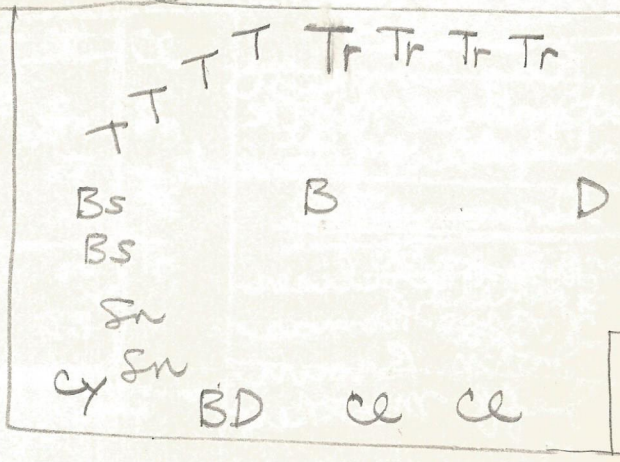 T T T T Tr Tr Tr Tr
Bs B D
Bs
Sn
Sn
Cy BD Cl Cl